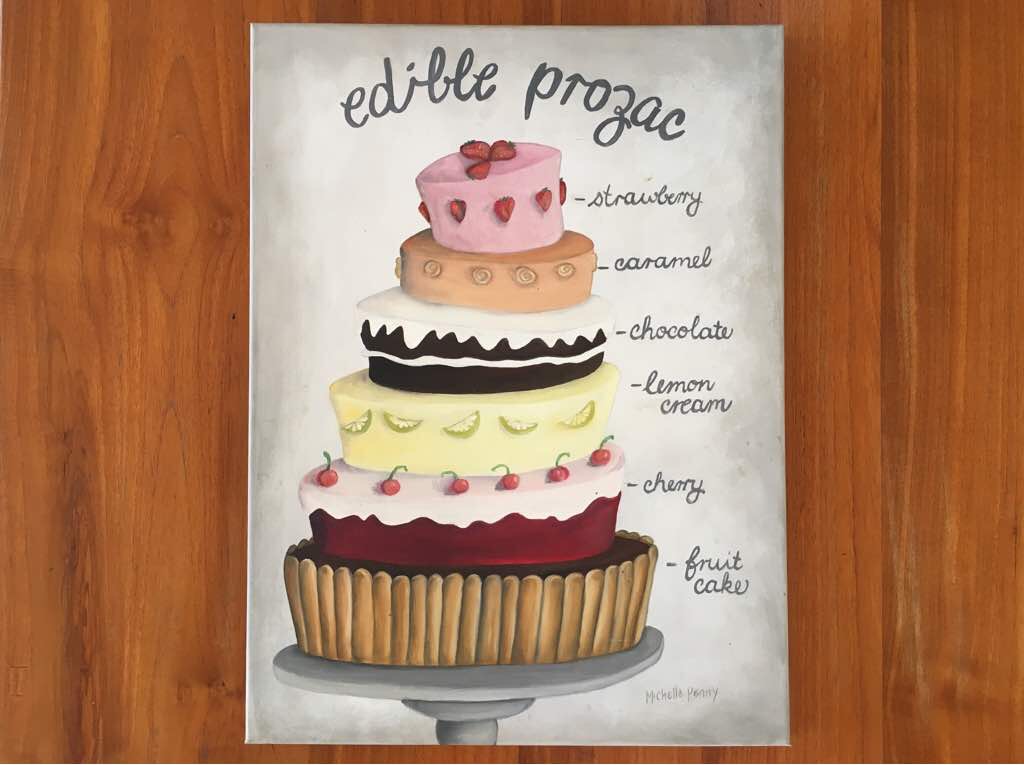 edible prozac
- strawberry
- caramel
- chocolate
- lemon
cream
- cherry
- fruit
cake
Michelle Penny